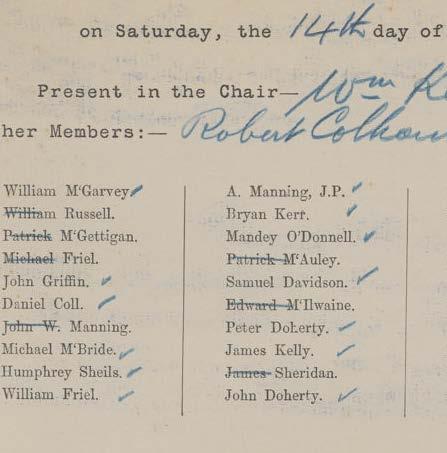 on Saturday, the 14th day of
Present in the Chair— Wm
her Members:— Robert Colhoun
William M'Garvey
William Russell.
Patrick M'Gettigan.
Michael Friel.
John Griffin.
Daniel Coll.
John W. Manning.
Michael M'Bride.
Humphrey Sheils.
William Friel.
A. Manning, J.P.
Bryan Kerr.
Mandey O'Donnell.
Patrick M'Auley.
Samuel Davidson.
Edward M'Ilwaine.
Peter Doherty.
James Kelly.
James Sheridan.
John Doherty.